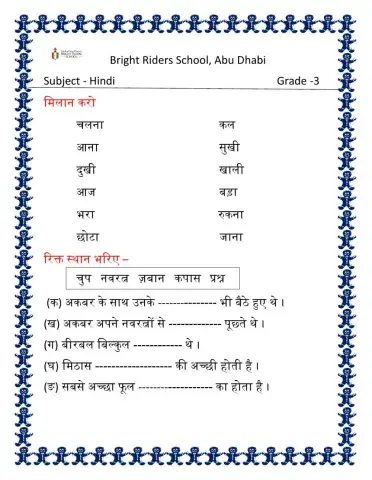 Bright Riders School, Abu Dhabi
Subject - Hindi Grade -3
मिलान करो
चलना कल
आना सुखी
दुखी खाली
आज बड़ा
भरा रुकना
छोटा जाना
रिक्त स्थान भरिए –
चुप नवरत्न ज़बान कपास प्रश्न
(क) अकबर के साथ उनके --------------- भी बैठे हुए थे ।
(ख) अकबर अपने नवरत्नों से ------------- पूछते थे ।
(ग) बीरबल बिल्कुल ------------ थे ।
(घ) मिठास ------------------- की अच्छी होती है ।
(ङ) सबसे अच्छा फूल ------------------- का होता है ।